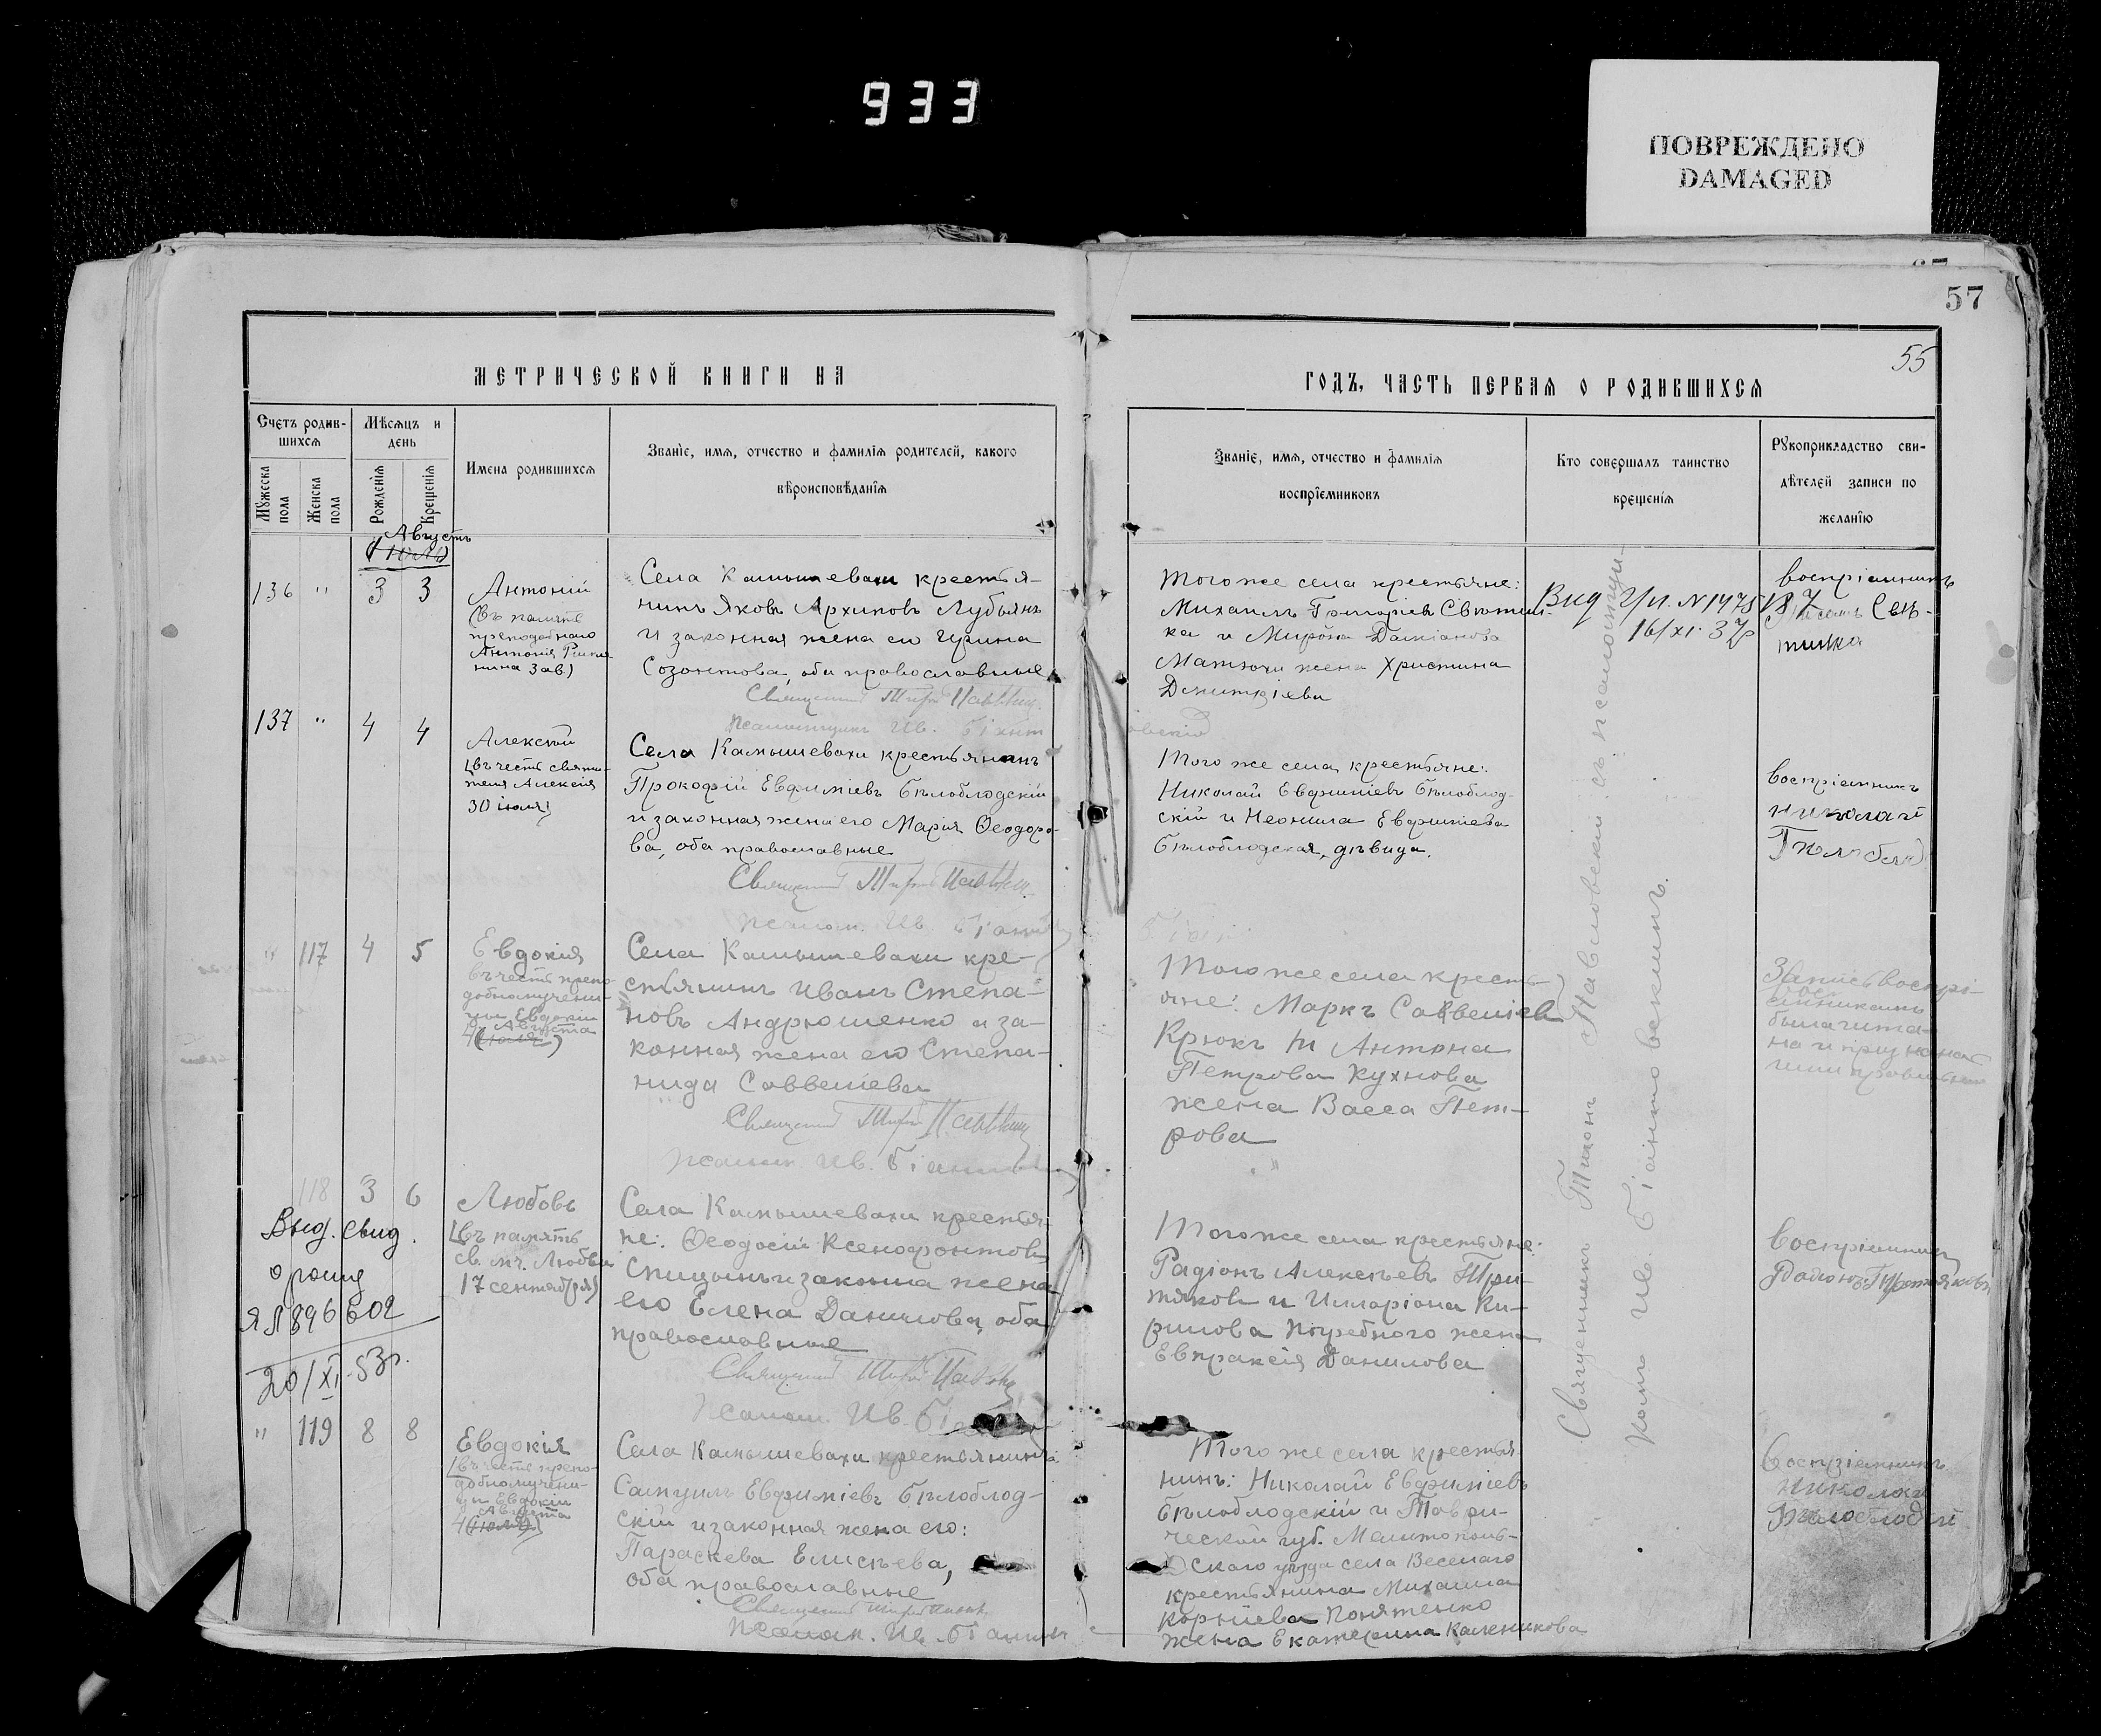 933
ПОВРЕЖДЕНО
DAMAGED
57
55
МЕТРИЧЕСКОЙ КНИГИ НА
ГОДЪ, ЧАСТЬ ПЕРВАЯ О РОДИВШИХСЯ
Счетъ родив-
шихся
Мужеска пола
Женска пола
Мѣсяцъ и
день
Рожденія
Крещенія
Имена родившихся
Званіе, имя, отчество и фамилія родителей, какого
вѣроисповѣданія
Званіе, имя, отчество и фамилія
воспріемниковъ
Кто совершалъ таинство
крещенія
Рукоприкладство сви-
дѣтелей записи по
желанію
Августъ
136 " 3 3
Антоній
(въ память
преподобнаго
Антонія Римля-
нина 3 ав)
Села Камышевахи крестья-
нинъ Яковъ Архиповъ Лубянъ
и законная жена его Ирина
Созонтова, оба православные
Священникъ
Псаломщикъ Ив.
Того же села крестьяне:
Михаилъ Григоріевъ
ка и Мирона Даміанова
Матюхи жена Христина
Димитріева
Выд
16/XI 37
воспріемникъ
137 " 4 4
Алексій
(въ честь святи-
теля Алексія
30 іюля)
Села Камышевахи крестьянинъ
Прокофій Евфиміевъ Бѣлоблодскій
и законная жена его Марія Ѳеодоро-
ва, оба православные
Священникъ
Псалом. Ив.
Того же села крестьяне:
Николай Евфиміевъ Бѣлоблод-
скій и Неонила Евфиміева
Бѣлоблодская, дѣвица.
воспріемникъ
Николай
" 117 4 5
Евдокія
въ честь препо-
добномучени-
цы Евдокіи
4 Августа
Села Камышевахи кре-
стьянинъ Иванъ Степа-
новъ Андрюшенко и за-
конная жена его Степа-
нида Саввеліева
Священникъ
Псалом. Ив.
Того же села кресть-
яне: Маркъ Саввеліев
Крюкъ и Антона
Петрова Кухнова
жена Васса Пет-
рова
Запись воспрі-
емникамъ
была чита-
на и признана
ими
118 3 6
Любовь
(въ память
св. мч. Любви
17 сентяб(ря)
Выд. свид.
о рожд
ЯЛ 896602
20/XI-53г.
Села Камышевахи крестья-
не: Ѳеодосій Ксенофонтовъ
Спицынъ и законна жена
его Елена Данилова, оба
православные
Священникъ
Псалом. Ив.
Того же села крестьяне:
Радіонъ Алексѣевъ Тре-
тяковъ и Илларіона Ки-
рилова Погребного жена
Евпраксія Данилова
Воспріемникъ
" 119 8 8
Евдокія
(въ честь препо-
добномучени-
цы Евдокіи
4 Августа
Села Камышевахи крестьянинъ
Самуилъ Евфиміевъ Бѣлоблод-
скій и законная жена его:
Параскева Елисѣева,
оба православные
Священникъ
Псалом. Ив.
Того же села крестья-
нинъ: Николай Евфиміевъ
Бѣлоблодскій и Таври-
ческой губ. Мелитополь-
скаго уѣзда села Веселаго
крестьянина Михаила
Корніева Понятенко
жена Екатерина Каленикова
воспріемникъ
Николай
Бѣлоблодскій
Священникъ Тихонъ Павловскій съ псаломщи-
комъ Ив. Біантовскимъ.